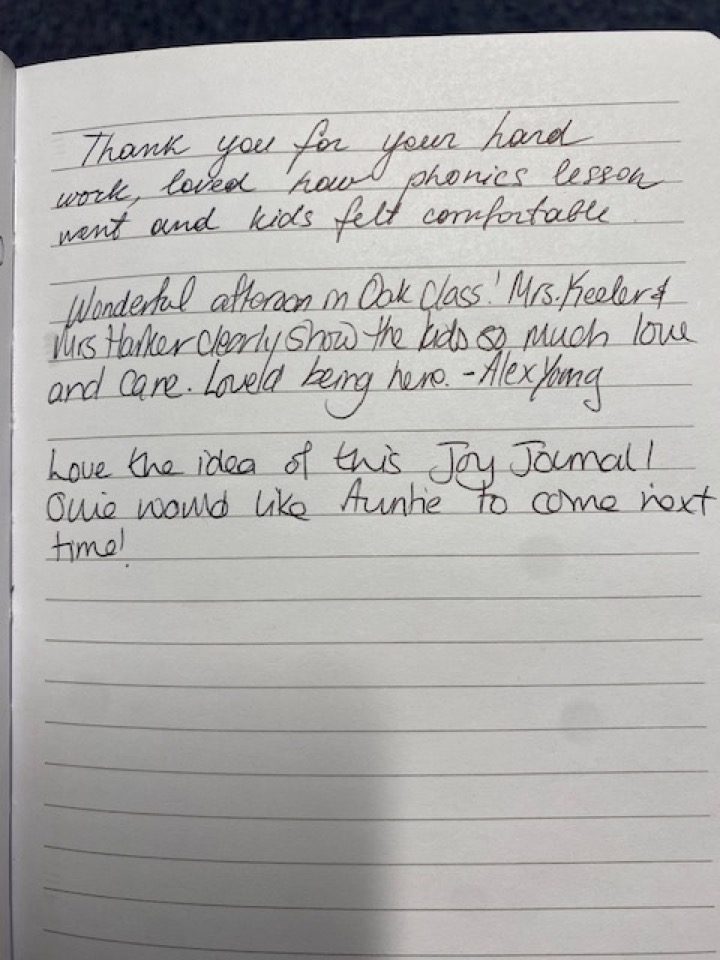 Thank you for your hard
work, loved how phonics lesson
went and kids felt comfortable
Wonderful afternoon in Oak Class! Mrs. Keeler &
Mrs Harker clearly show the kids so much love
and care. Loveld being here. - Alex Young
Love the idea of this Joy Journal!
Ollie would like Auntie to come next
time!